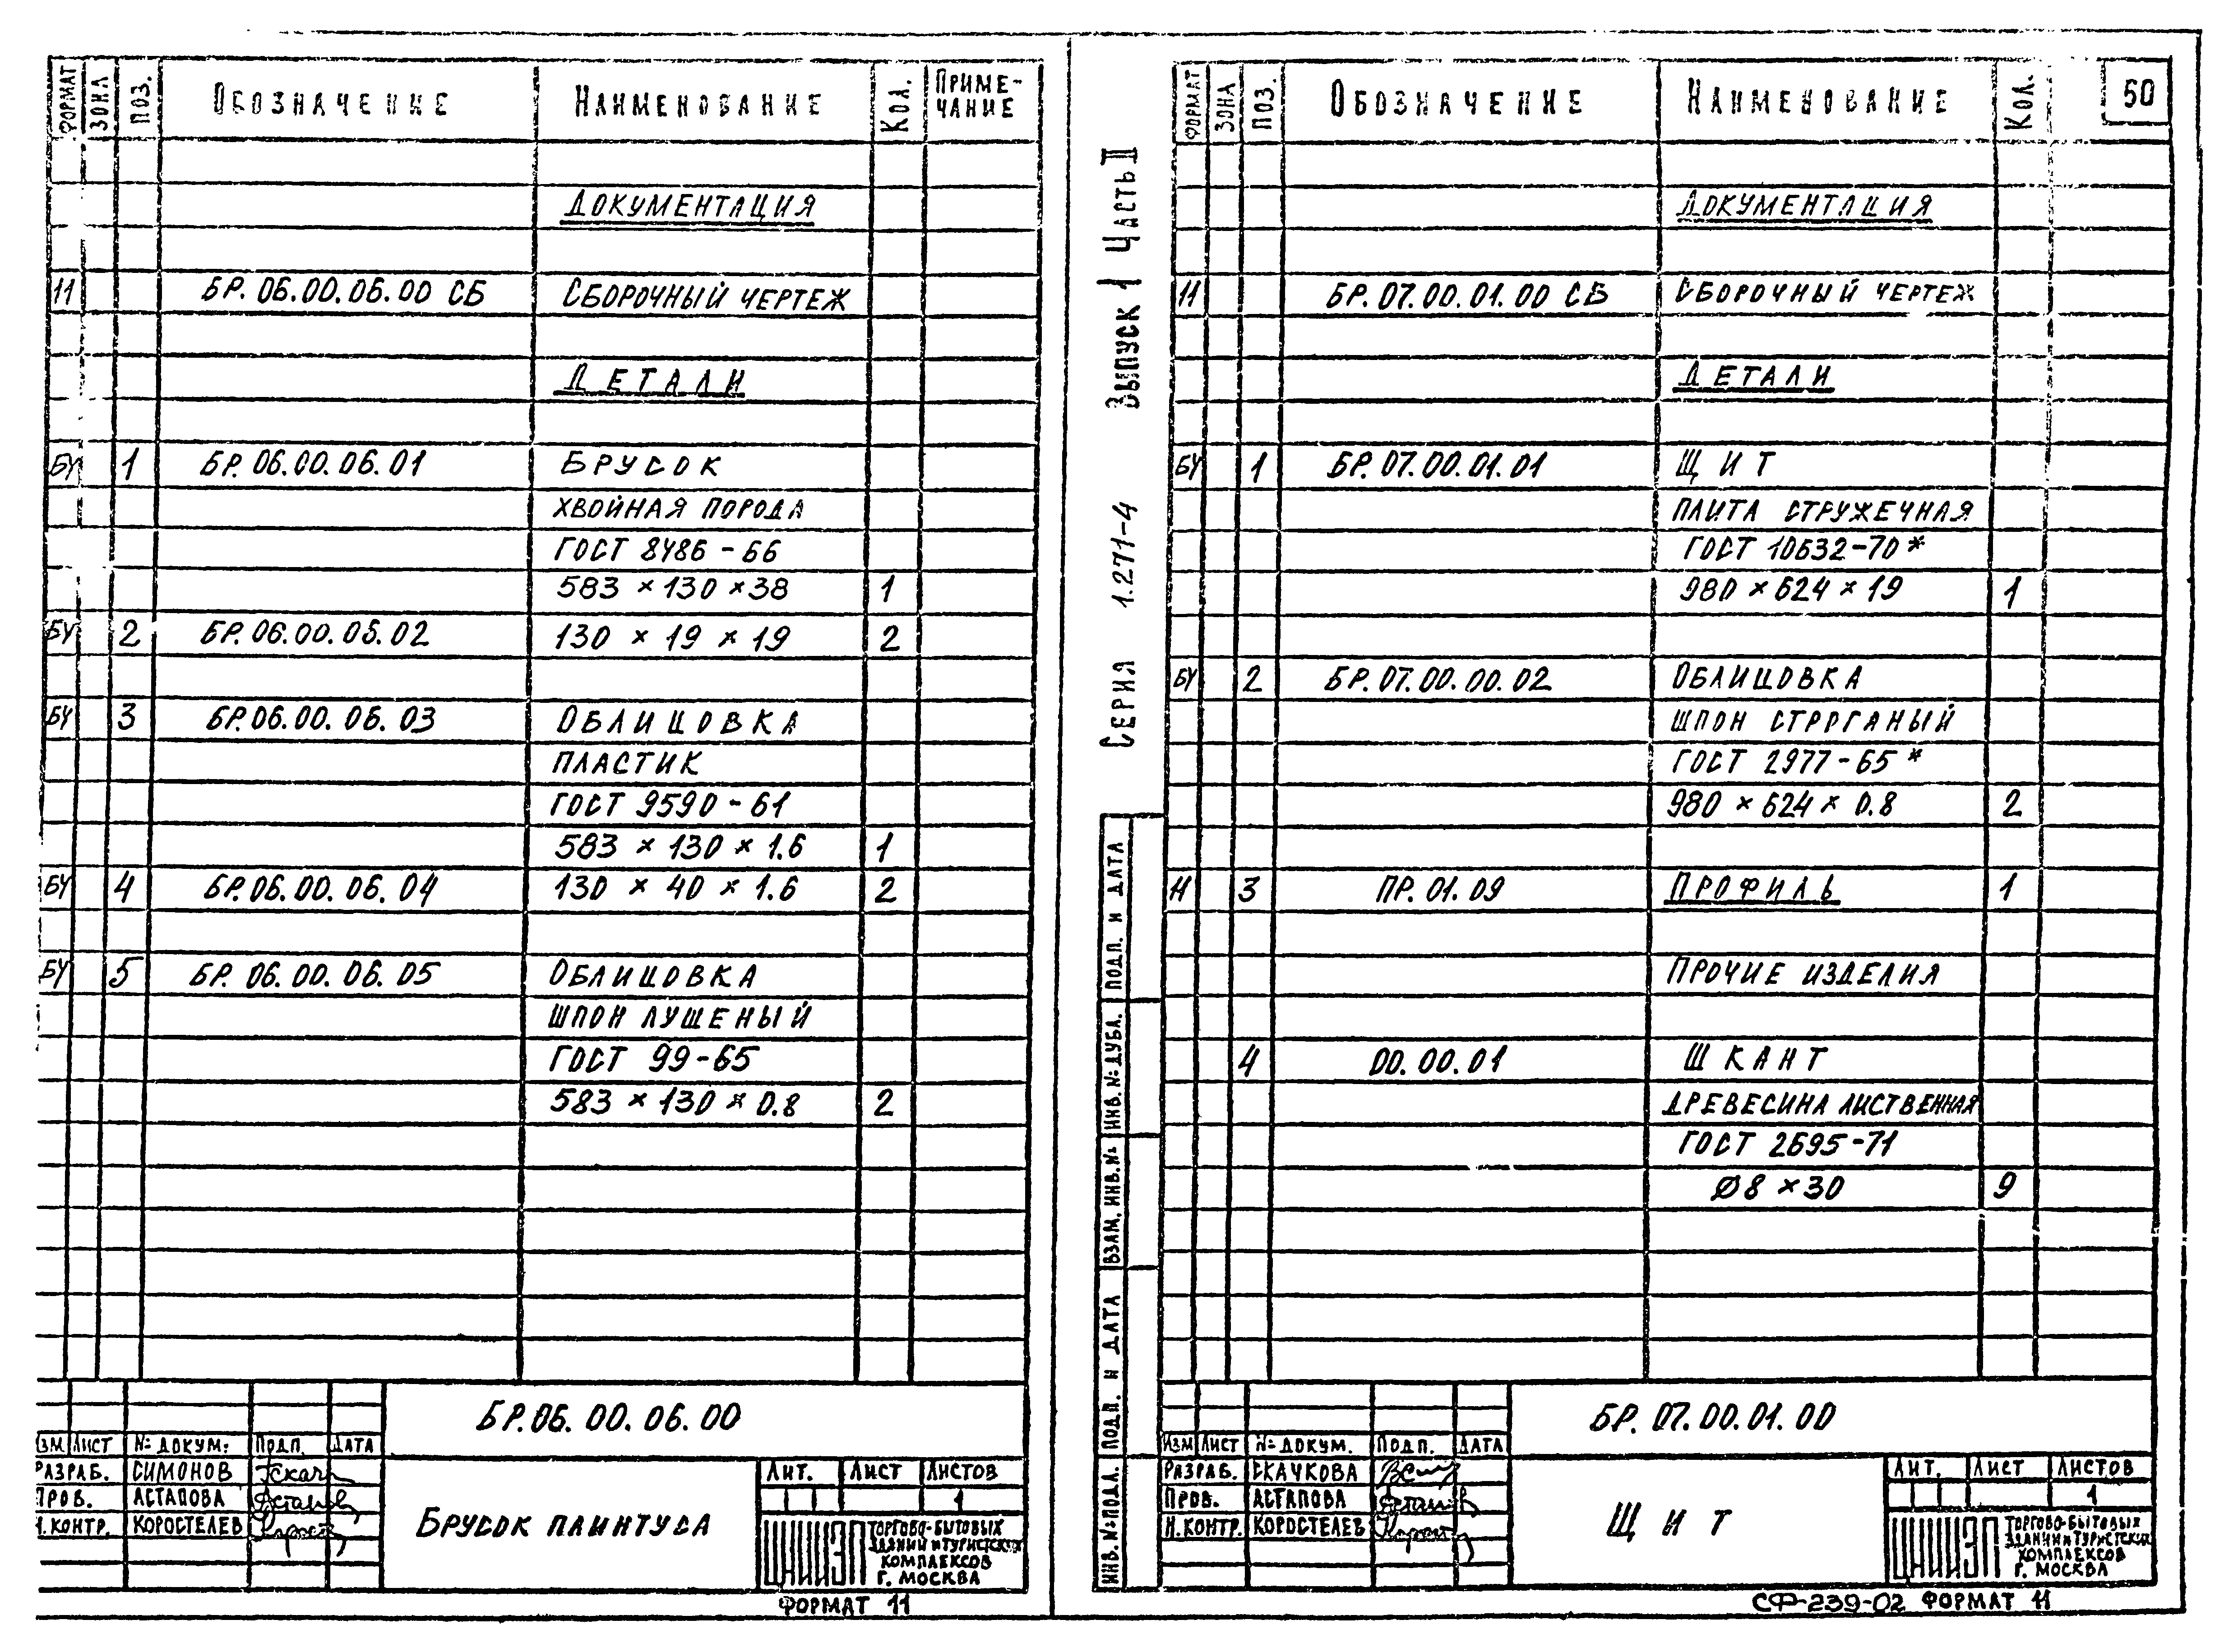 ФОРМАТ ЗОНА ПОЗ. ОБОЗНАЧЕНИЕ НАИМЕНОВАНИЕ КОЛ. ПРИМЕ-
ЧАНИЕ
ДОКУМЕНТАЦИЯ
11 БР. 06.00.06.00 СБ СБОРОЧНЫЙ ЧЕРТЕЖ
ДЕТАЛИ
БЧ 1 БР. 06.00.06.01 БРУСОК
ХВОЙНАЯ ПОРОДА
ГОСТ 8486-66
583 × 130 × 38 1
БЧ 2 БР. 06.00.06.02 130 × 19 × 19 2
БЧ 3 БР. 06.00.06.03 ОБЛИЦОВКА
ПЛАСТИК
ГОСТ 9590-61
583 × 130 × 1.6 1
БЧ 4 БР. 06.00.06.04 130 × 40 × 1.6 2
БЧ 5 БР. 06.00.06.05 ОБЛИЦОВКА
ШПОН ЛУЩЕНЫЙ
ГОСТ 99-65
583 × 130 × 0.8 2
БР.06.00.06.00
ИЗМ ЛИСТ № ДОКУМ. ПОДП. ДАТА
РАЗРАБ. СИМОНОВ
ПРОВ. АСТАПОВА
Н.КОНТР. КОРОСТЕЛЕВ
БРУСОК ПЛИНТУСА
ЛИТ. ЛИСТ ЛИСТОВ
1
ЦНИИЭП ТОРГОВО-БЫТОВЫХ
ЗДАНИЙ И ТУРИСТСКИХ
КОМПЛЕКСОВ
Г. МОСКВА
ФОРМАТ 11
СЕРИЯ 1.271-4 ВЫПУСК 1 ЧАСТЬ II
ИНВ.№ ПОДЛ. ПОДП. И ДАТА ВЗАМ. ИНВ.№ ИНВ.№ ДУБЛ. ПОДП. И ДАТА
ФОРМАТ ЗОНА ПОЗ. ОБОЗНАЧЕНИЕ НАИМЕНОВАНИЕ КОЛ. 50
ДОКУМЕНТАЦИЯ
11 БР. 07.00.01.00 СБ СБОРОЧНЫЙ ЧЕРТЕЖ
ДЕТАЛИ
БЧ 1 БР. 07.00.01.01 ЩИТ
ПЛИТА СТРУЖЕЧНАЯ
ГОСТ 10632-70*
980 × 624 × 19 1
БЧ 2 БР. 07.00.00.02 ОБЛИЦОВКА
ШПОН СТРОГАНЫЙ
ГОСТ 2977-65*
980 × 624 × 0.8 2
11 3 ПР. 01.09 ПРОФИЛЬ 1
ПРОЧИЕ ИЗДЕЛИЯ
4 00.00.01 ШКАНТ
ДРЕВЕСИНА ЛИСТВЕННАЯ
ГОСТ 2695-71
Ø8 × 30 9
БР. 07.00.01.00
ИЗМ ЛИСТ № ДОКУМ. ПОДП. ДАТА
РАЗРАБ. СКАЧКОВА
ПРОВ. АСТАПОВА
Н.КОНТР. КОРОСТЕЛЕВ
ЩИТ
ЛИТ. ЛИСТ ЛИСТОВ
1
ЦНИИЭП ТОРГОВО-БЫТОВЫХ
ЗДАНИЙ И ТУРИСТСКИХ
КОМПЛЕКСОВ
Г. МОСКВА
СФ-239-02 ФОРМАТ 11